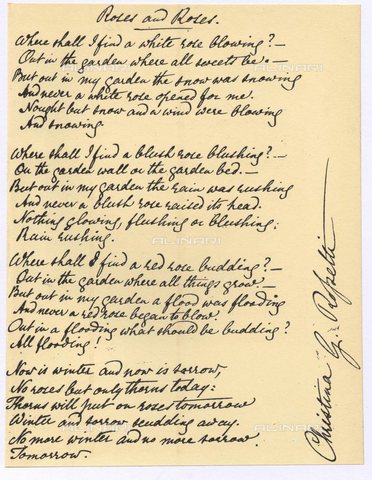 Roses and Roses.
Where shall I find a white rose blowing?—
Out in the garden where all sweets be.—
But out in my garden the snow was snowing
And never a white rose opened for me.
Nought but snow and a wind were blowing
And snowing.
Where shall I find a blush rose blushing?—
On the garden wall or the garden bed.—
But out in my garden the rain was rushing
And never a blush rose raised its head.
Nothing glowing, flushing or blushing:
Rain rushing.
Where shall I find a red rose budding?—
Out in the garden where all things grow.—
But out in my garden a flood was flooding
And never a red rose began to blow.
Out in a flooding what should be budding?
All flooding!
Now is winter and now is sorrow,
No roses but only thorns today:
Thorns will put on roses tomorrow
Winter and sorrow scudding away.
No more winter and no more sorrow
Tomorrow.
Christina G. Rossetti
ALINARI
ALINARI
ALINARI